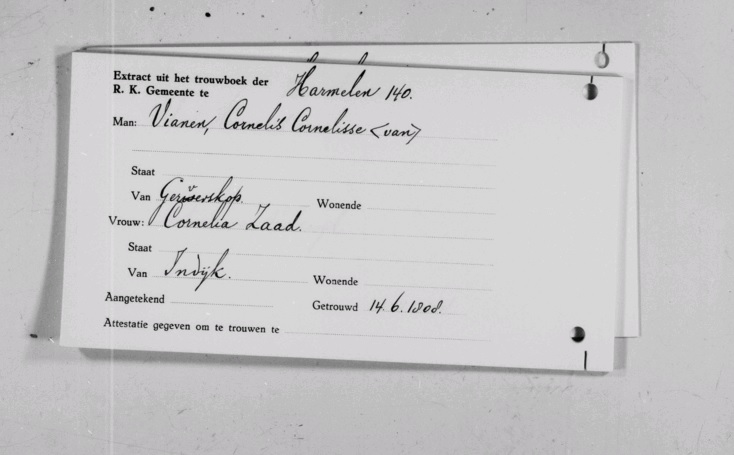 Extract uit het trouwboek der
R. K. Gemeente te Harmelen 140.
Man: Vianen, Cornelis Cornelisse <van>
Staat
Van Gerverskop. Wonende
Vrouw: Cornelia Zaad.
Staat
Van Indijk. Wonende
Aangetekend Getrouwd 14.6.1808.
Attestatie gegeven om te trouwen te